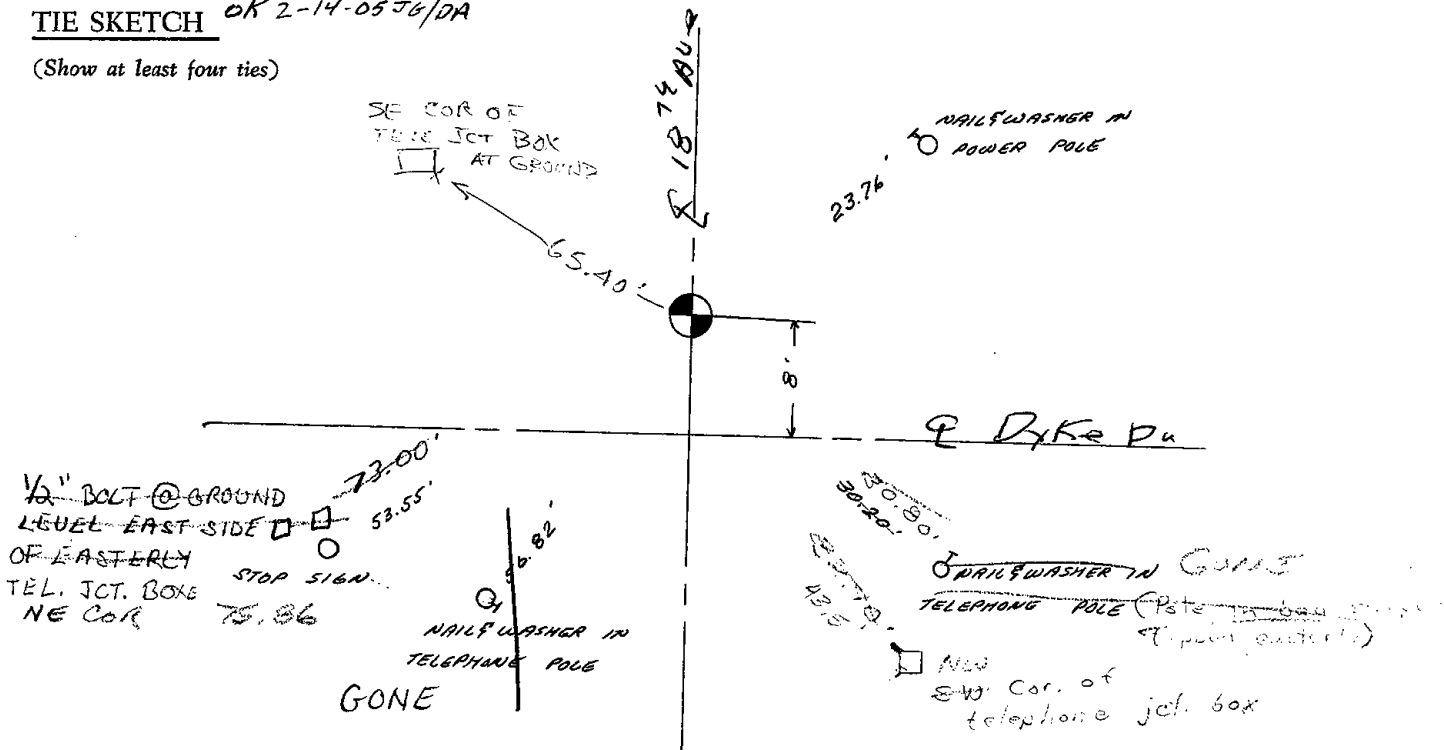 TIE SKETCH OK 2-14-05 JG/DA
(Show at least four ties)
℄ 18TH AVE
SE COR OF
TELE JCT BOX
AT GROUND
NAIL & WASHER IN
POWER POLE
23.76'
65.40'
8'
℄ Dyke
73.00'
53.55'
1/2" BOLT @ GROUND
LEVEL EAST SIDE
OF EASTERLY
TEL. JCT. BOX
NE COR 75.86
STOP SIGN
56.82'
NAIL & WASHER IN
TELEPHONE POLE
GONE
30.20'
NAIL & WASHER IN GONE
TELEPHONE POLE (Pole
43.5
NW
SW Cor. of
telephone jct. box